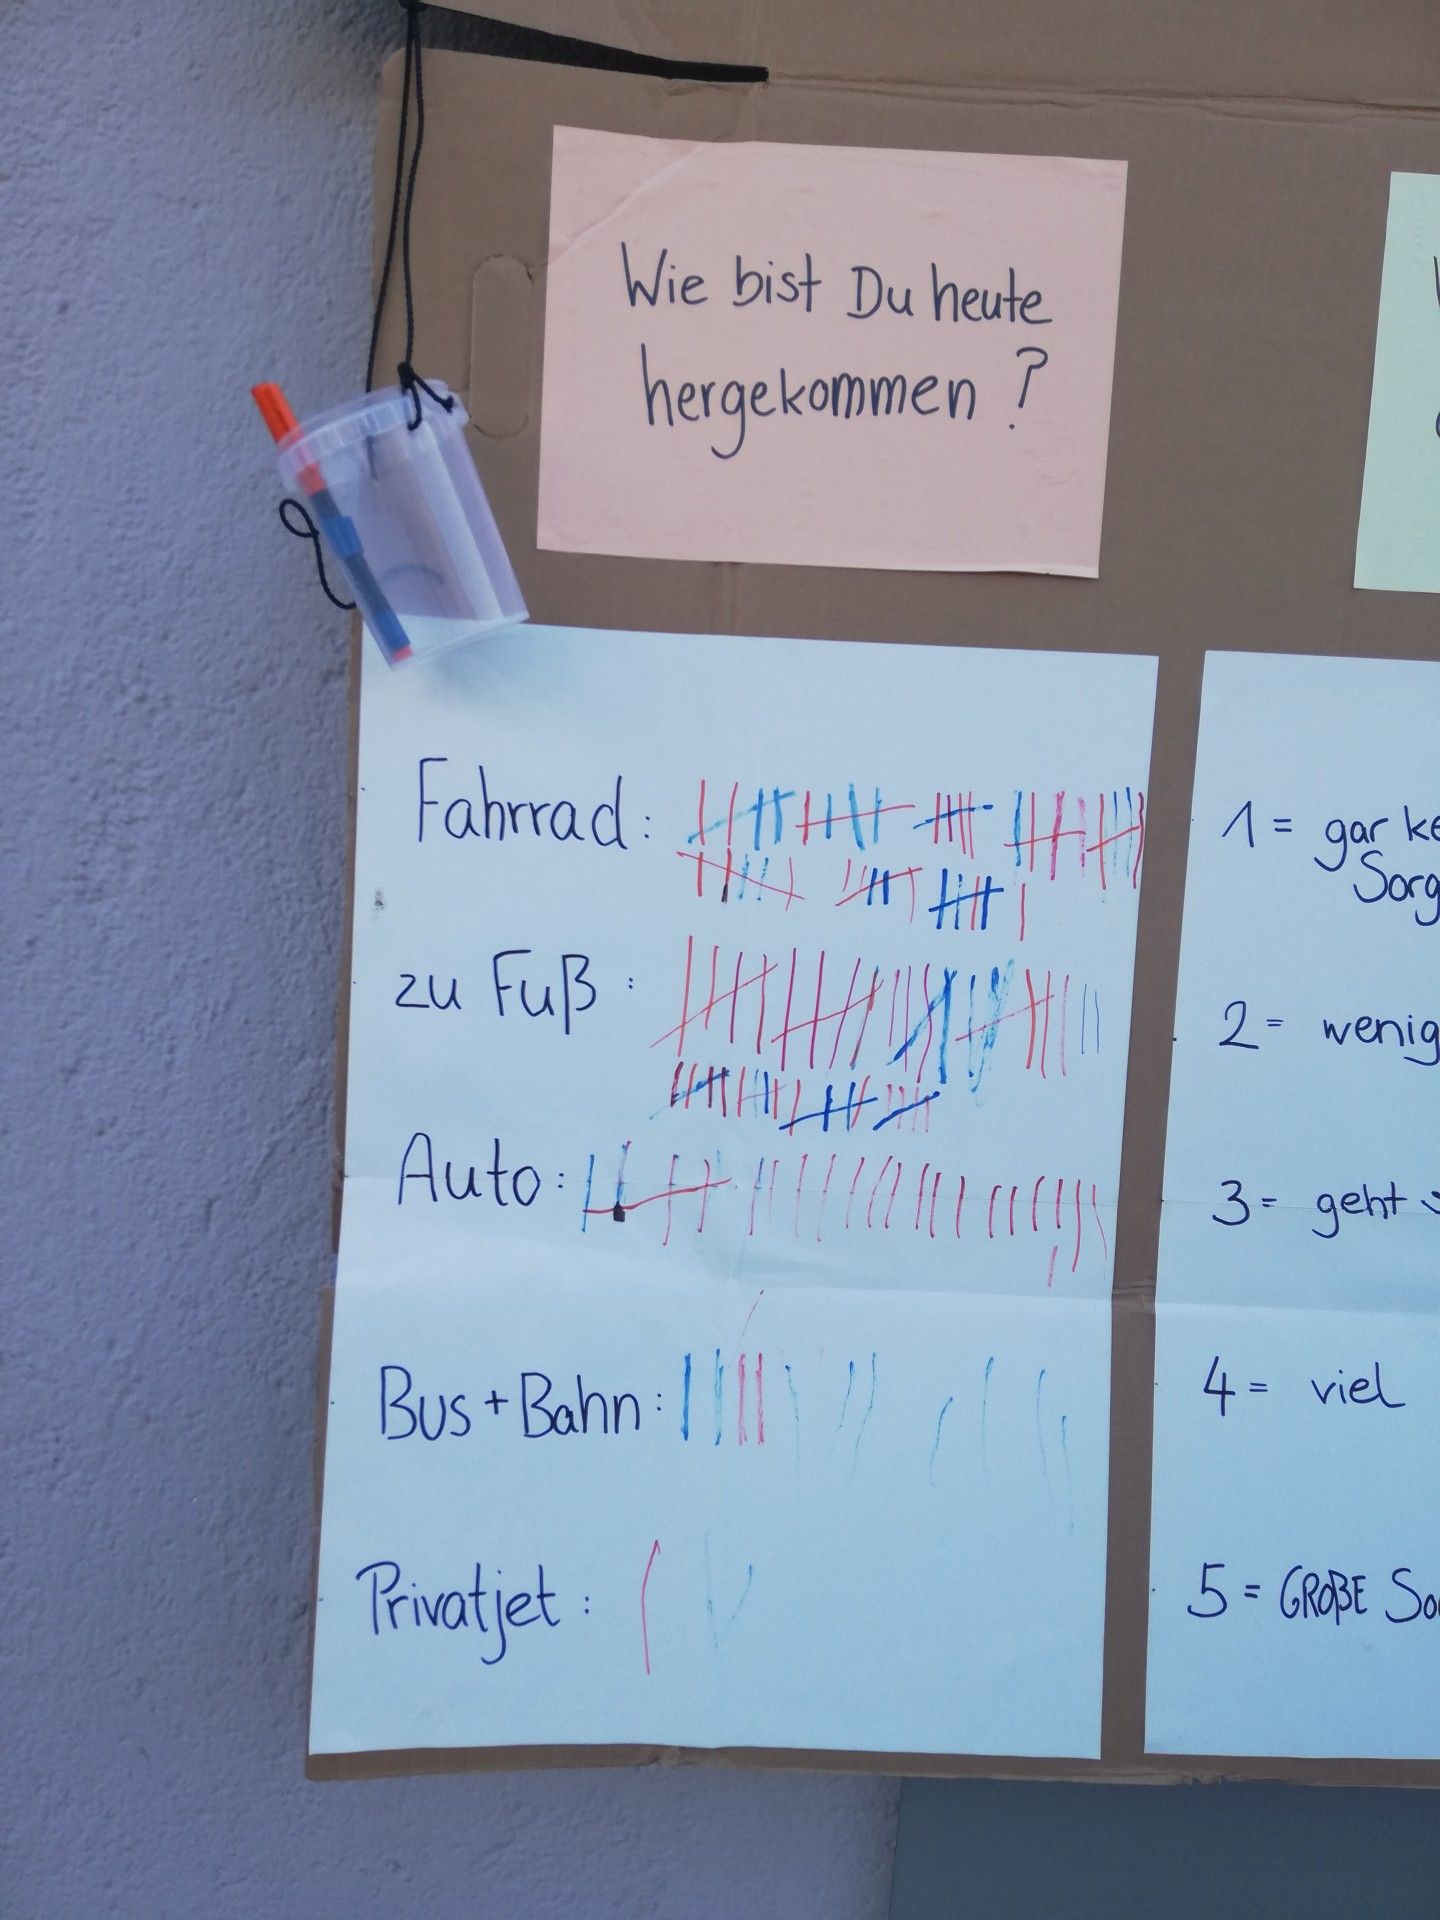 Wie bist Du heute
hergekommen?
Fahrrad:
zu Fuß:
Auto:
Bus+Bahn:
Privatjet:
1 = gar
Sorg
2 = wenig
3 = geht
4 = viel
5 = GROßE